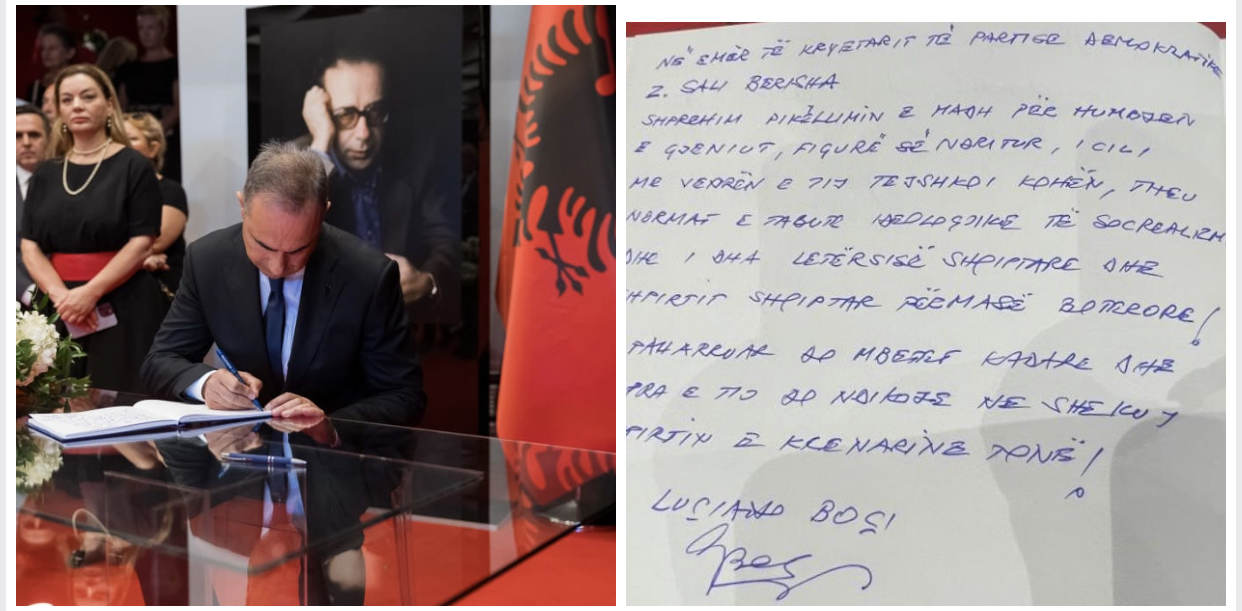 NË EMËR TË KRYETARIT TË PARTISE DEMOKRATIKE
Z. SALI BERISHA
SHPREHIM PIKËLLIMIN E MADH PËR HUMBJEN
E GJENIUT, FIGURË SË NDRITUR, I CILI,
ME VEPRËN E TIJ TEJSHKOI KOHËN, THEU
NORMAT E TABUTË IDEOLOGJIKE TË SOCREALIZM
DHE I DHA LETËRSISË SHQIPTARE DHE
HPIRTIT SHQIPTAR PËRMASË BOTERORE!
PAHARRUAR DO MBETET KADARE DHE
PRA E TIJ DO NDIKOJE NE SHEKUJ
PIRTIN E KRENARINË TONË!
LUÇIANO BOÇI